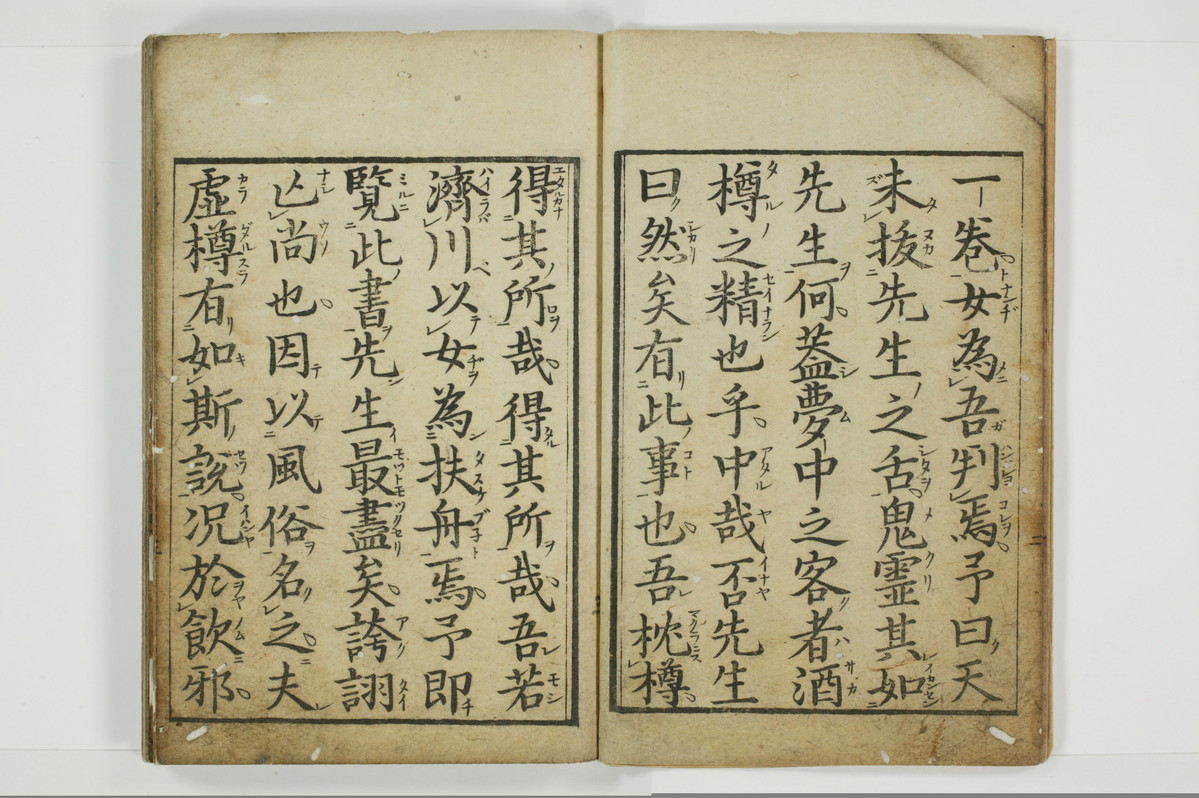 一巻女為吾判焉予曰天
未抜先生之舌鬼霊其如
先生何蓋夢中之客者酒
樽之精也乎中哉否先生
曰然矣有此事也吾枕樽
得其所哉得其所哉吾若
濟川以女為扶舟焉予即
覧此書先生最盡矣誇詡
亾尚也因以風俗名之夫
虚樽有如斯説况於飲邪